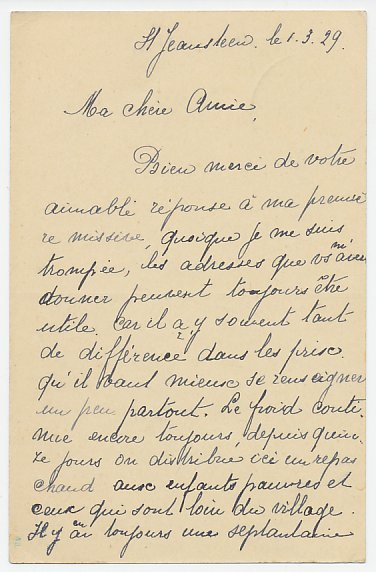 St Jeansteen. le 1.3.29.
Ma chère Amie,
Bien merci de votre
aimable réponse à ma premiè
re missive, quoique je me suis
trompée, les adresses que vs m'aviez
donner peuvent toujours être
utile. Car il a, y souvent tant
de différence dans les prisc.
qu'il vaut mieuse se renseigner
un peu partout. Le froid conti-
nue encore toujours, depuis quin-
ze jours on distribue ici un repas
chaud ausc enfants pauvres et
ceux qui sont loin du village.
Il y en a toujours une septantaine